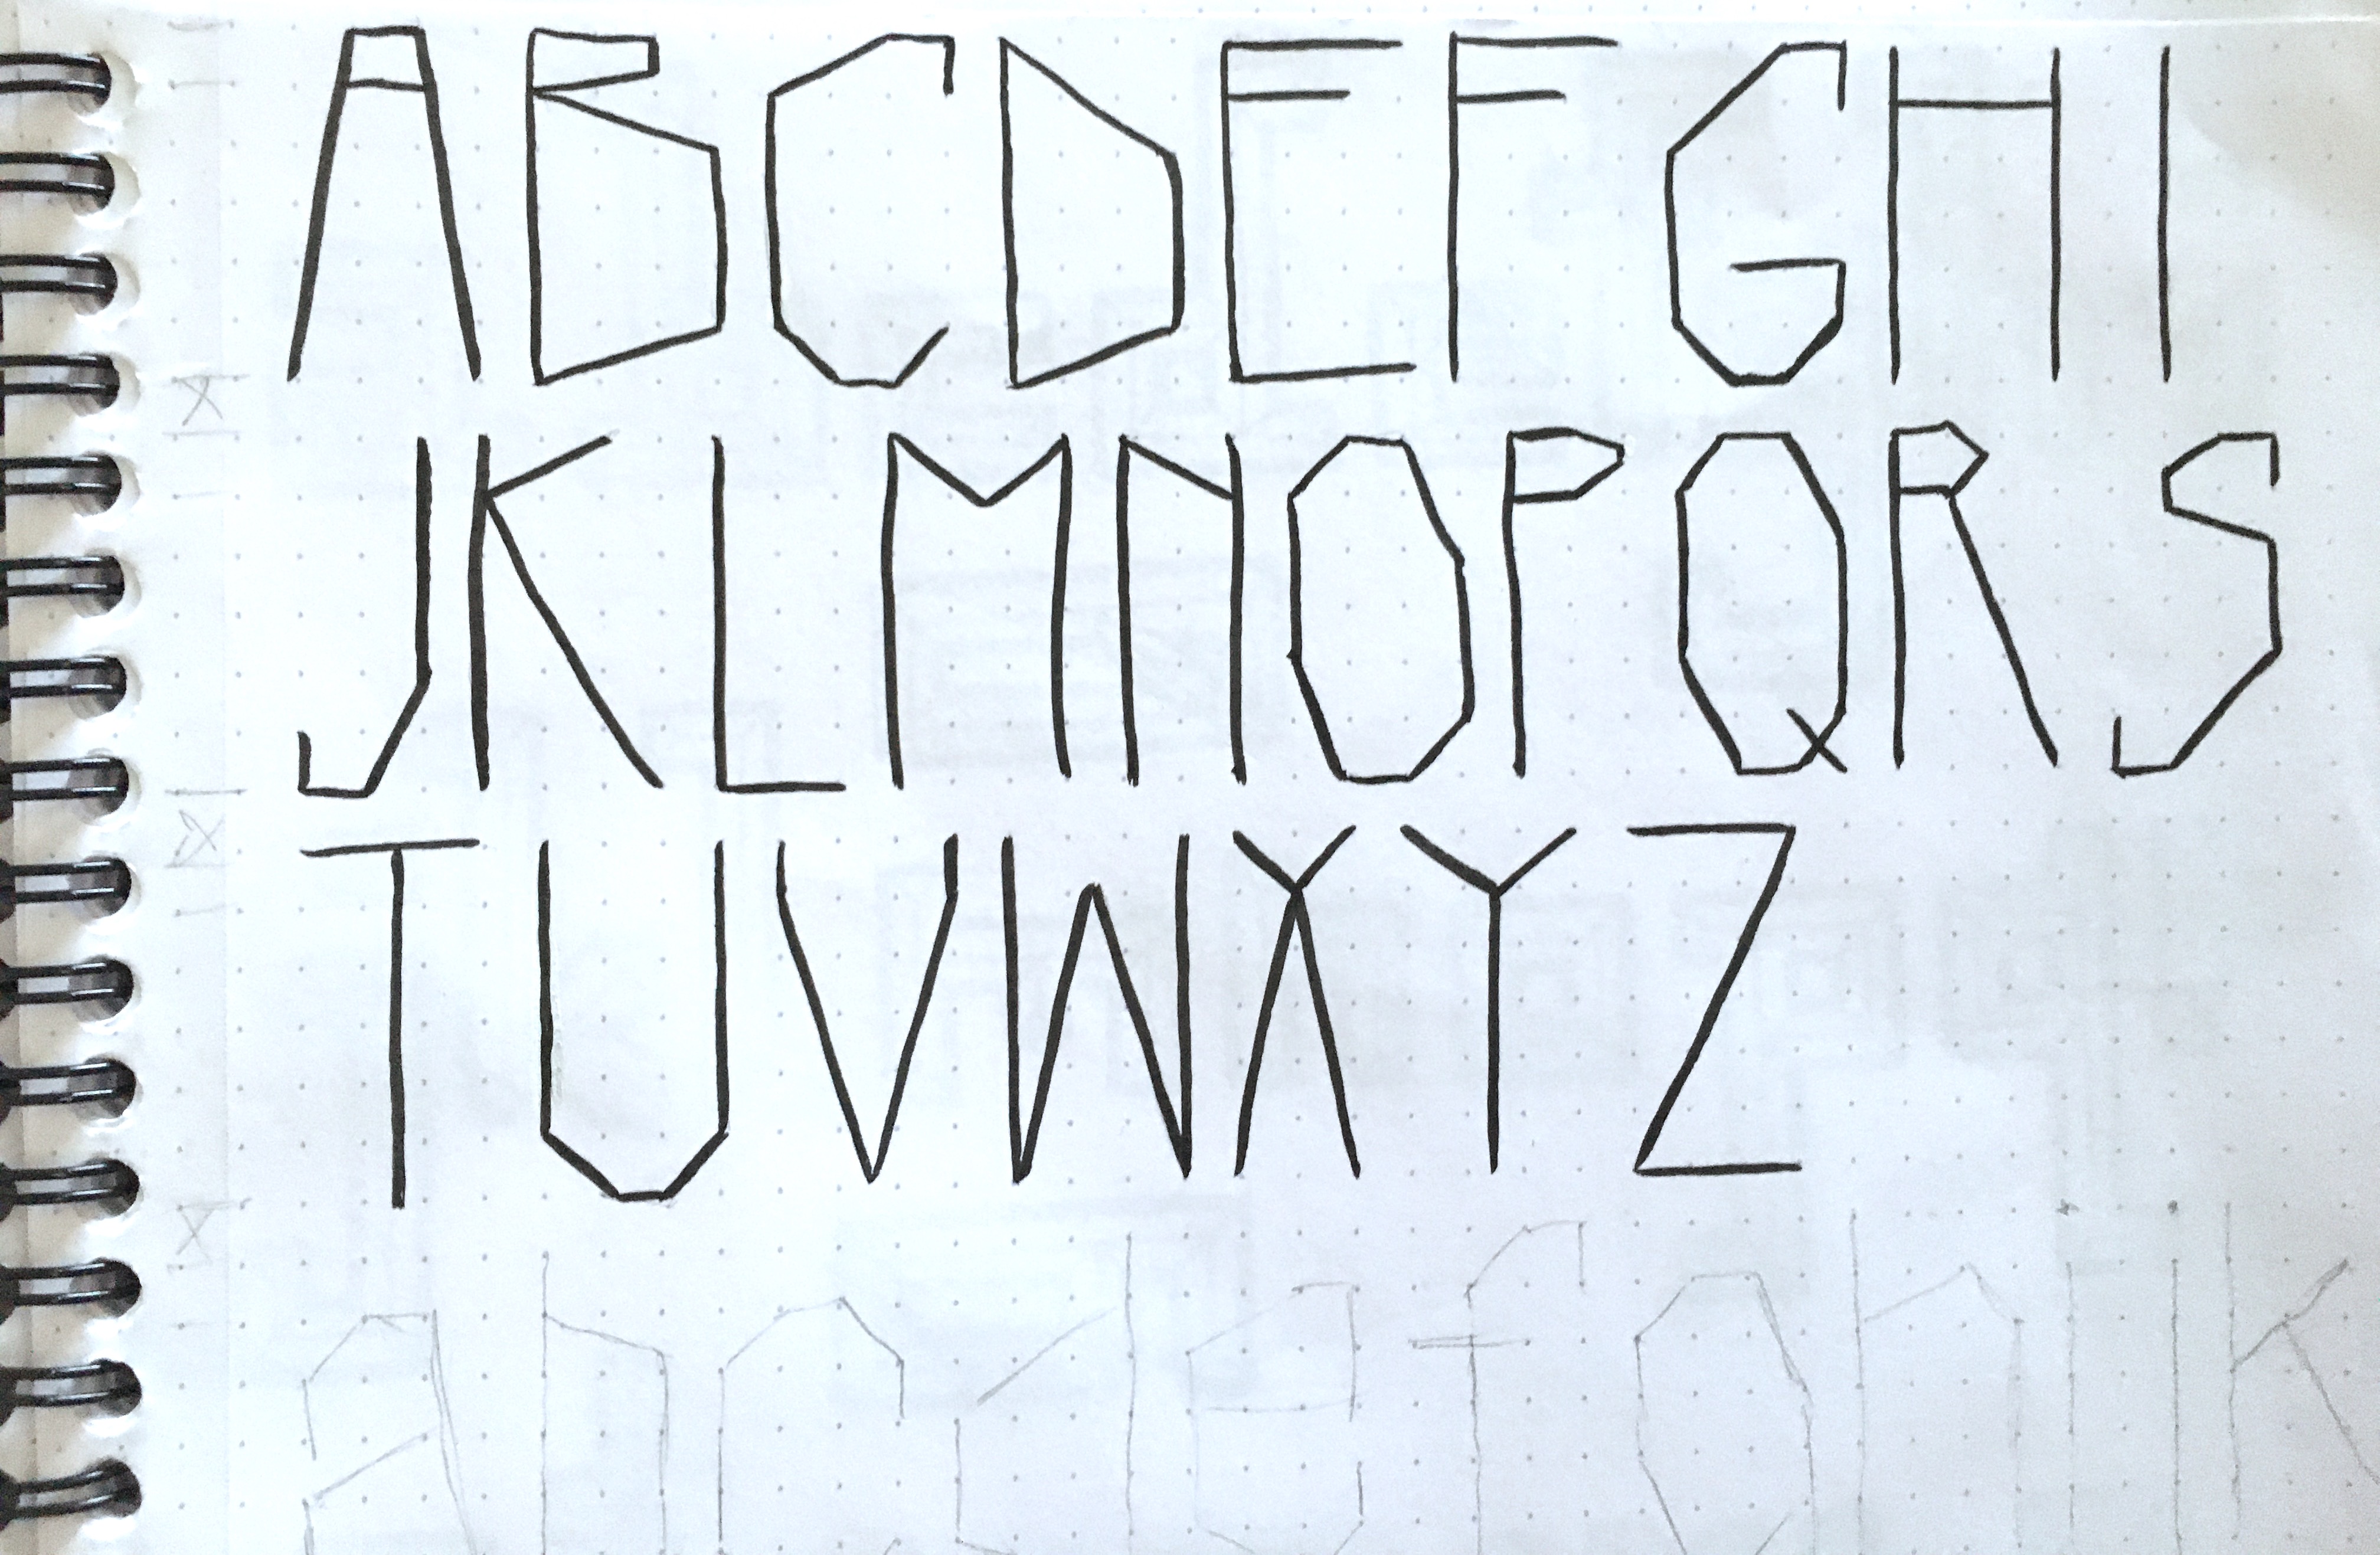 ABCDEFGHI
JKLMNOPQRS
TUVWXYZ
abcdefghijk